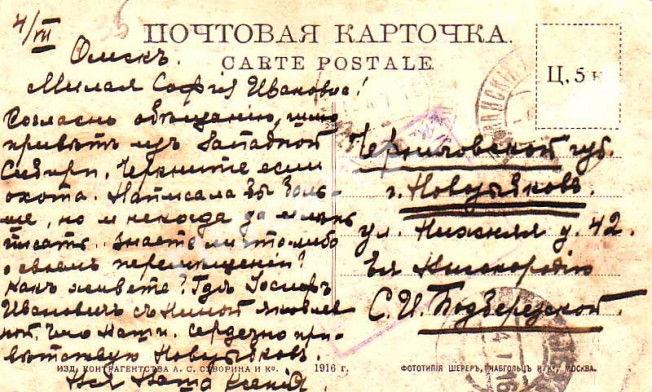 4/III
ПОЧТОВАЯ КАРТОЧКА.
CARTE POSTALE.
Ц. 5 к
Омскъ.
Милая Софія Ивановна!
Согласно обѣщанію, шлю
привѣтъ изъ Западной
Сибири. Черкните если
охота. Написала бы боль-
ше, но и некогда да и лѣнь
писать. Знаете ли что либо
о своемъ перемѣщеніи?
Какъ живете? Гдѣ
Ивановичъ съ Ниной Яковлев
ной. Что Наши. Сердечно при-
вѣтствую Новозыбковъ.
Черниговской губ.
г. Новозыбковъ.
ул. Нижняя д. 42.
Ея
С. И.
ИЗД. КОНТРАГЕНТСТВА А. С. СУВОРИНА И Ко.
1916 г.
ФОТОТИПІЯ ШЕРЕРЪ, НАБГОЛЬЦЪ И Ко, МОСКВА.